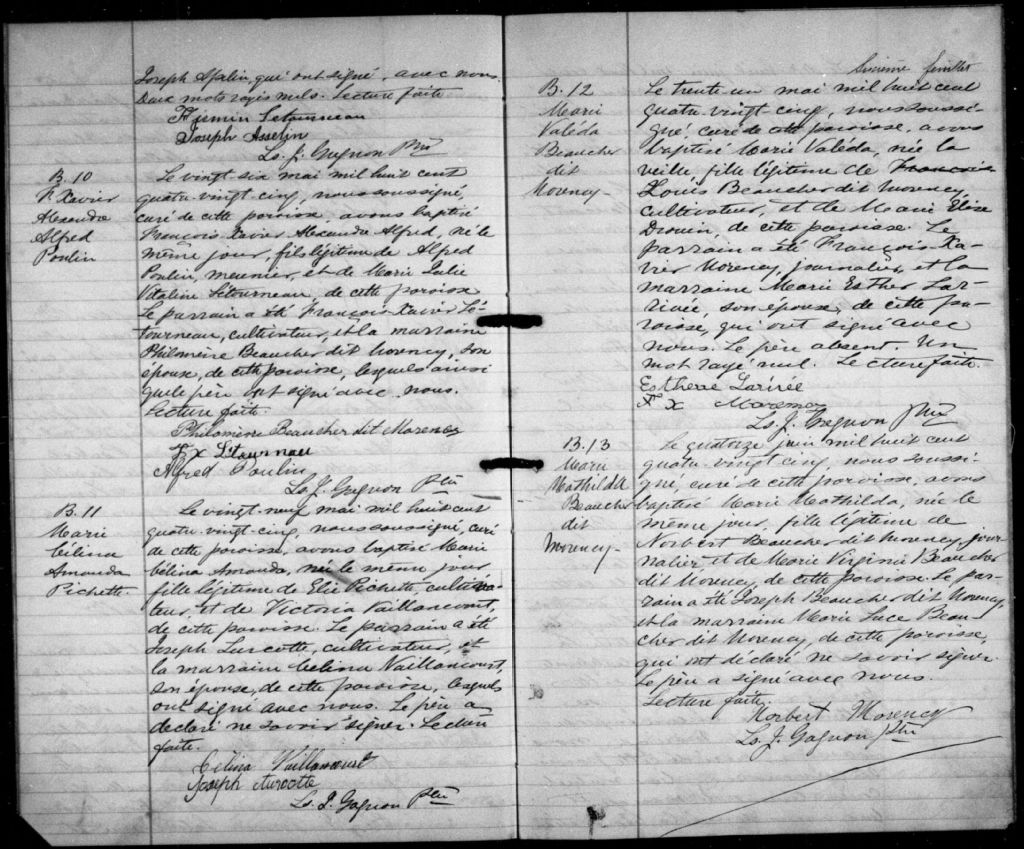 Joseph Aſselin, qui ont signé, avec nous.
Deux mots rayés nuls. Lecture faite
Firmin Letourneau
Joseph Asselin
Ls. J. Gagnon Ptre
B. 10
F. Xavier
Alexandre
Alfred
Poulin
Le vingt six mai mil huit cent
quatre vingt cinq, nous soussigné,
curé de cette paroisse, avons baptisé
François Xavier Alexandre Alfred, né le
même jour, fils légitime de Alfred
Poulin, meunier, et de Marie Julie
Vitaline Létourneau, de cette paroisse
Le parrain a été François Xavier Lé-
tourneau, cultivateur, et la marraine
Philomène Beaucher dit Morency, son
épouse, de cette paroisse, lesquels ainsi
que le père ont signé avec nous.
Lecture faite.
Philomène Beaucher dit Morency
F X Létournau
Alfred Poulin
Ls. J. Gagnon Ptre
B. 11
Marie
Célina
Amanda
Pichette
Le vingt-neuf mai mil huit cent
quatre-vingt-cinq, nous soussigné, curé
de cette paroisse, avons baptisé Marie
Célina Amanda, née le même jour
fille légitime de Elie Pichette, cultiva-
teur et de Victoria Vaillancourt,
de cette paroisse. Le parrain a été
Joseph Turcotte, cultivateur, et
la marraine Celina Vaillancourt,
son épouse, de cette paroisse, lesquels
ont signé avec nous. Le père a
déclaré ne savoir signer. Lecture
faite.
Célina Vaillancourt
Joseph Turcotte
Ls. J. Gagnon Ptre
Sixième feuillet
B. 12
Marie
Valéda
Beaucher
dit
Morency-
Le trente un mai mil huit cent
quatre-vingt cinq, nous soussi-
gné, curé de cette paroisse, avons
baptisé Marie Valéda, née la
veille, fille légitime de François
Louis Beaucher dit Morency,
cultivateur, et de Marie Elise
Drouin, de cette paroisse. Le
parrain a été François Xa-
vier Morency, journalier, et la
marraine Marie Esther Lar-
rivée, son épouse, de cette pa-
roisse, qui ont signé avec
nous. Le père absent. Un
mot rayé nul. Lecture faite.
Esthere Larivée
F X Morency
Ls. J. Gagnon Ptre
B. 13
Marie
Mathilda
Beaucher
dit
Morency-
Le quatorze juin mil huit cent
quatre-vingt cinq, nous soussi-
gné, curé de cette paroisse, avons
baptisé Marie Mathilda, née le
même jour, fille légitime de
Norbert Beaucher dit Morency, jour-
nalier et de Marie Virginie Beaucher
dit Morency, de cette paroisse. Le par-
rain a été Joseph Beaucher dit Morency,
et la marraine Marie Luce Beau-
cher dit Morency, de cette paroisse,
qui ont déclaré ne savoir signer.
Le père a signé avec nous.
Lecture faite.
Norbert Morency
Ls. J. Gagnon Ptre